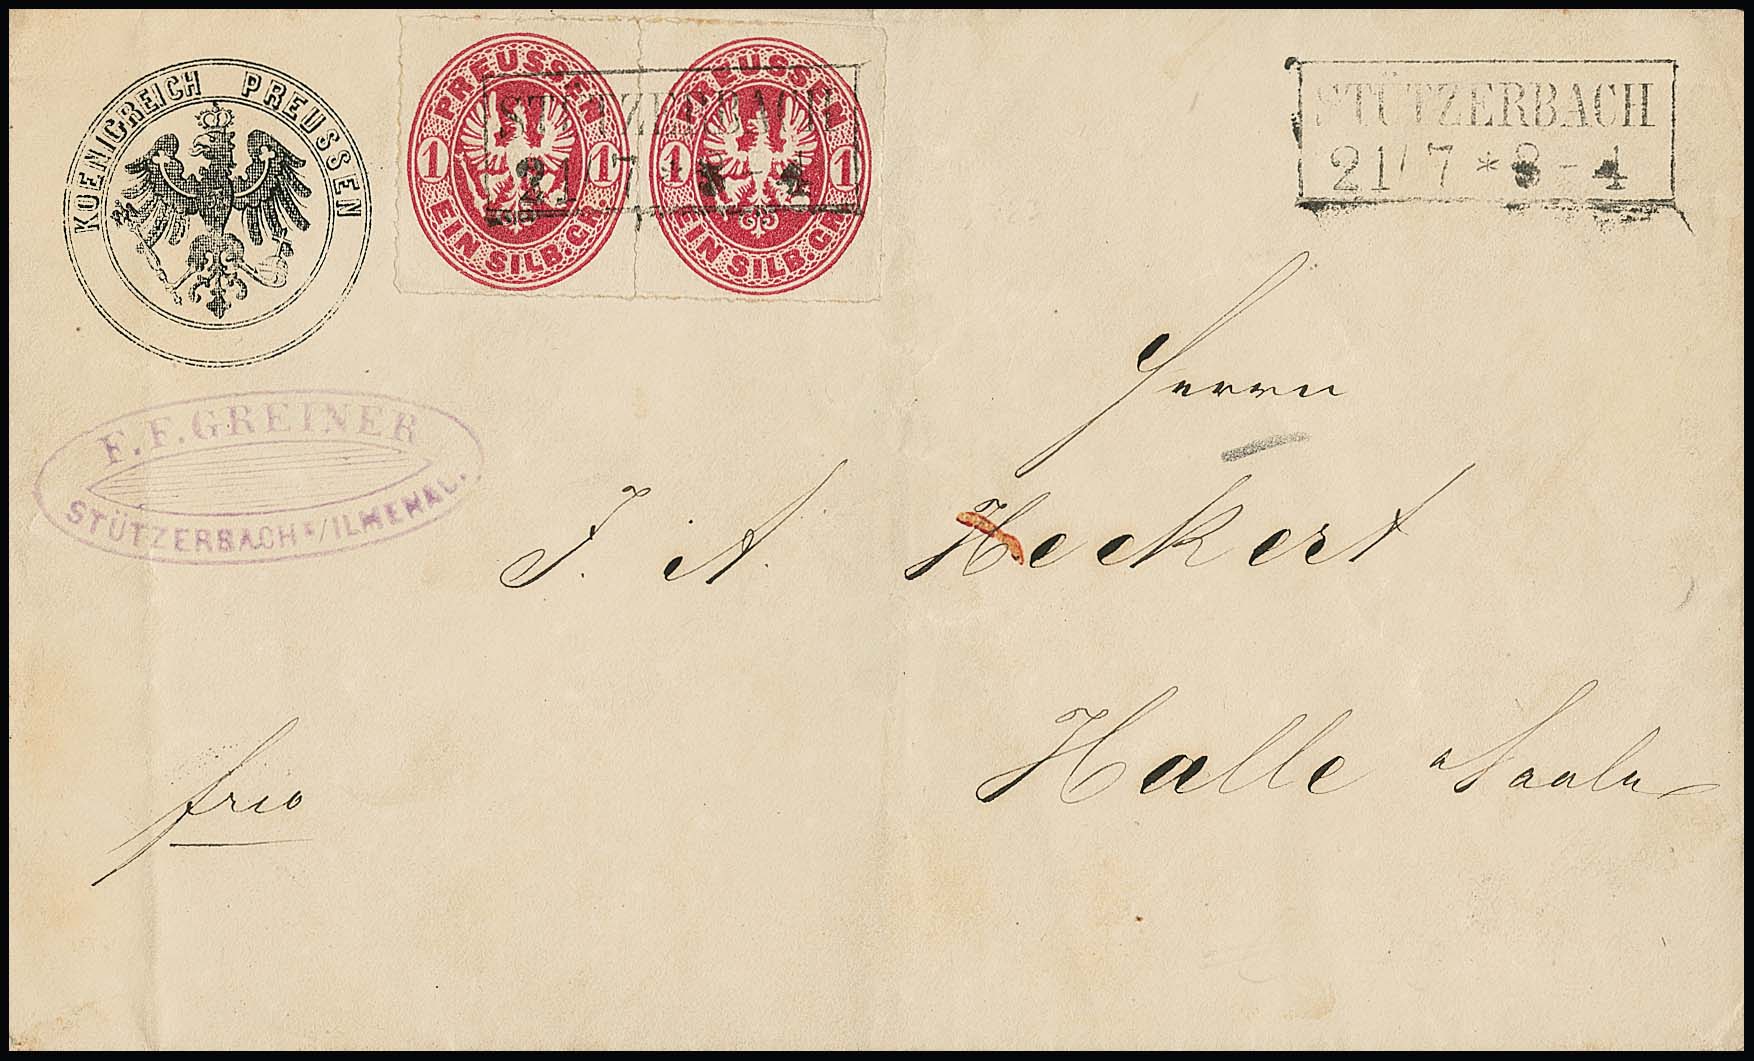 KOENIGREICH PREUSSEN
PREUSSEN
1 1
EIN SILB.GR.
PREUSSEN
1 1
EIN SILB.GR.
STÜTZERBACH
21 7 * 3 - 4
STÜTZERBACH
21 7 * 3 - 4
F. F. GREINER
STÜTZERBACH B/ILMENAU.
Herrn
J. A. Heckert
Halle a Saale
frco